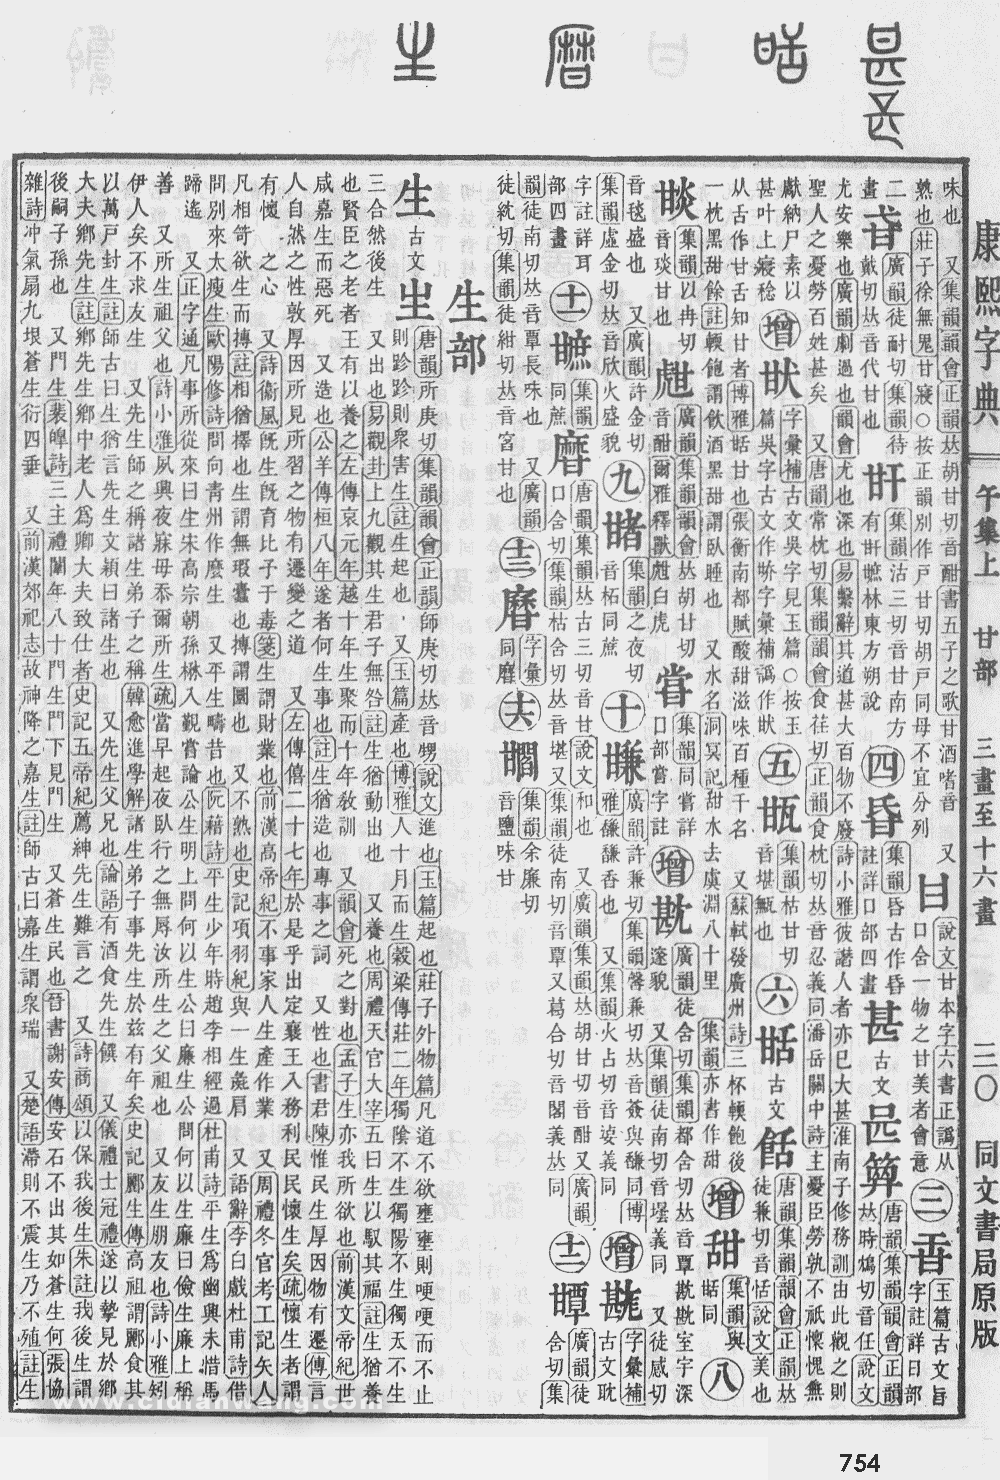 康熙字典 午集上 甘部 三畫至十六畫 二〇 同文書局原版
味也 又集韻韻會正韻𠀤胡甘切音酣書五子之歌甘酒嗜音 又
熟也莊子徐無鬼甘寢〇按正韻別作戶甘切胡戶同母不宜分列
甘 說文甘本字六書正譌从
口含一物之甘美者會意
三
玉篇古文旨
字註詳日部
二畫
廣韻徒耐切集韻待
戴切𠀤音代甘也
甘甘 集韻沽三切音甘南方
有甘甘䗪林東方朔說
四
昏 集韻昏古作昏
註詳口部四畫
甚 古文
唐韻集韻韻會正韻
𠀤時鴆切音任說文
尤安樂也廣韻劇過也韻會尤也深也易繫辭其道甚大百物不廢詩小雅彼譖人者亦已大甚淮南子修務訓由此觀之則
聖人之憂勞百姓甚矣 又唐韻常枕切集韻韻會食荏切正韻食枕切𠀤音忍義同潘岳關中詩主憂臣勞孰不祇懷愧無
獻納尸素以
甚叶上寢稔
增
字彙補古文吳字見玉篇〇按玉
篇吳字古文作㕦字彙補譌作㽎
五
集韻枯甘切
音堪瓾也
六
甛 古文
唐韻集韻韻會正韻𠀤
徒兼切音恬說文美也
从古作甘舌知甘者博雅甛甘也張衡南都賦酸甜滋味百種千名 又蘇軾發廣州詩三杯輭飽後
一枕黑甜餘註輭飽謂飲酒黑甜謂臥睡也 又水名洞冥記甜水去虞淵八十里 集韻亦書作甜
增
甜 集韻與
甛同
八
集韻以冉切
音琰甘也
廣韻集韻韻會𠀤胡甘切
音酣爾雅釋獸甝白虎
甞 集韻同嘗詳
口部嘗字註
增
廣韻徒含切集韻都含切𠀤音覃
遂貌 又集韻徒南切音墰義同 又徒感切
音毯盛也 又廣韻許金切
集韻虛金切𠀤音歆火盛貌
九
集韻之夜切
音柘同蔗
十
廣韻許兼切集韻馨兼切𠀤音薟與馦同博
雅䭑馦香也 又集韻火占切音𡝫義同
增
字彙補
古文耽
字註詳耳
部四畫
十一
集韻
同蔗
唐韻集韻𠀤古三切音甘說文和也 又廣韻集韻𠀤胡甘切音酣又廣韻
口含切集韻枯含切𠀤音堪又集韻徒南切音覃又葛合切音閤義𠀤同
十二
廣韻徒
含切集
韻徒南切𠀤音覃長味也 又廣韻
徒紞切集韻徒紺切𠀤音宮甘也
十三
字彙
同磿
十六
集韻余廉切
音鹽味甘
生部
生 古文 𤯓 唐韻所庚切集韻韻會正韻師庚切𠀤音甥說文進也玉篇起也莊子外物篇凡道不欲壅壅則哽哽而不止
則跈跈則衆害生註生起也 又玉篇產也博雅人十月而生穀梁傳莊二年獨陰不生獨陽不生獨天不生
三合然後生 又出也易觀卦上九觀其生君子無咎註生猶動出也 又養也周禮天官大宰五曰生以馭其福註生猶養
也賢臣之老者王有以養之左傳哀元年越十年生聚而十年敎訓 又韻會死之對也孟子生亦我所欲也前漢文帝紀世
咸嘉生而惡死 又造也公羊傳桓八年遂者何生事也註生猶造也專事之詞 又性也書君陳惟民生厚因物有遷傳言
人自然之性敦厚因所見所習之物有遷變之道 又左傳僖二十七年於是乎出定襄王入務利民民懷生矣疏懷生者謂
有懷之心 又詩衞風旣生旣育比予于毒箋生謂財業也前漢高帝紀不事家人生產作業 又周禮冬官考工記矢人
凡相笴欲生而摶註相猶擇也生謂無瑕蠹也摶謂圜也 又不熟也史記項羽紀與一生彘肩 又語辭李白戲杜甫詩借
問別來太瘦生歐陽修詩問向靑州作麽生 又平生疇昔也阮籍詩平生少年時趙李相經過杜甫詩平生爲幽興未惜馬
蹄遙 又正字通凡事所從來曰生宋高宗朝孫楙入覲嘗論公生明上問何以生公曰廉生公問何以生廉曰儉生廉上稱
善 又所生祖父也詩小雅夙興夜寐毋忝爾所生疏當早起夜臥行之無辱汝所生之父祖也 又友生朋友也詩小雅矧
伊人矣不求友生 又先生師之稱諸生弟子之稱韓愈進學解諸生弟子事先生於兹有年矣史記酈生傳高祖謂酈食其
以萬戶封生註師古曰生猶言先生文穎曰諸生也 又先生父兄也論語有酒食先生饌 又儀禮士冠禮遂以摯見於鄕
大夫鄕先生註鄕先生鄕中老人爲卿大夫致仕者史記五帝紀薦紳先生難言之 又詩商頌以保我後生朱註我後生謂
後嗣子孫也 又門生裴皥詩三主禮闈年八十門生門下見門生 又蒼生民也晉書謝安傳安石不出其如蒼生何張協
雜詩沖氣扇九垠蒼生衍四垂 又前漢郊祀志故神降之嘉生註師古曰嘉生謂衆瑞 又楚語滯則不震生乃不殖註生
www.cidianwang.com
754